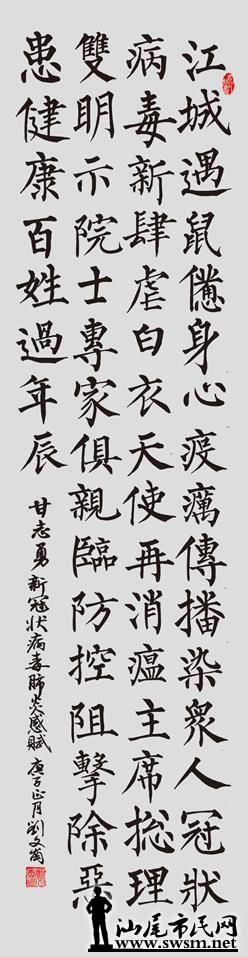 江城遇鼠億身心疫癘傳播染衆人冠狀
病毒新肆虐白衣天使再消瘟主席捴理
雙明示院士專家俱親臨防控阻擊除惡
患健康百姓過年辰
甘志勇新冠狀病毒肺炎感賦 庚子正月劉文
汕尾市民网
www.swsm.net